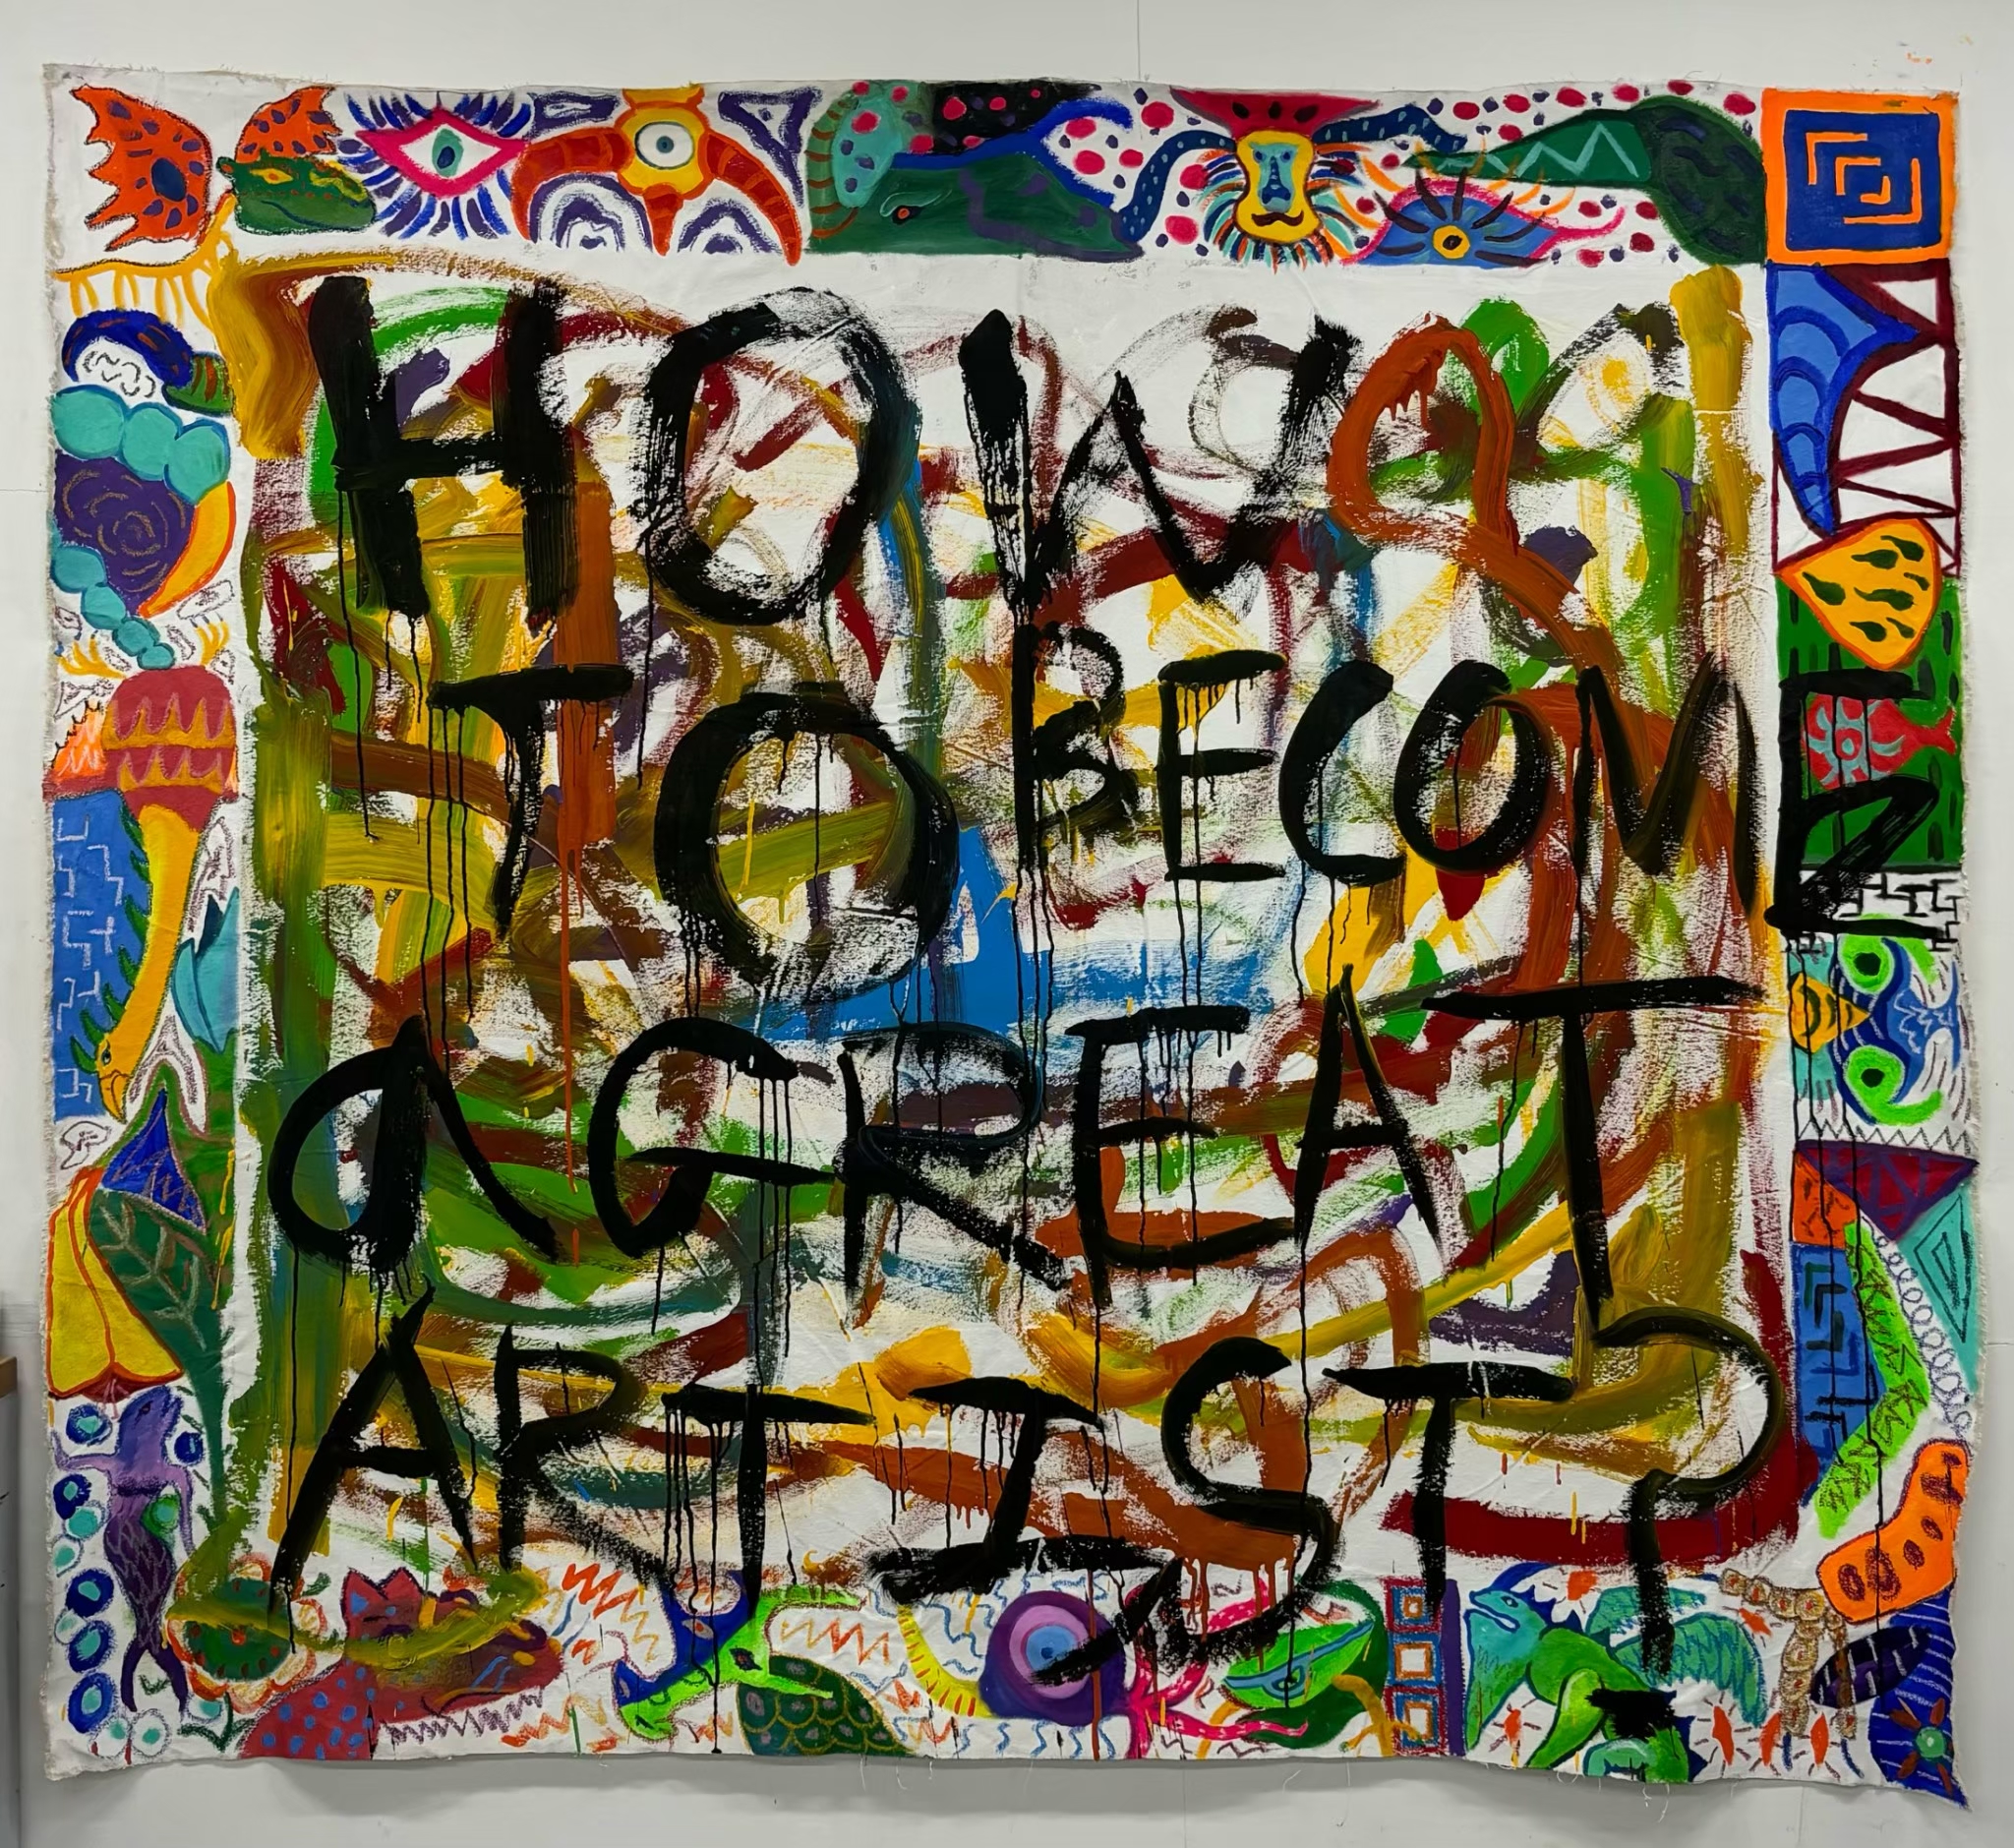 HOW
TO BECOME
a GREAT
ARTIST?